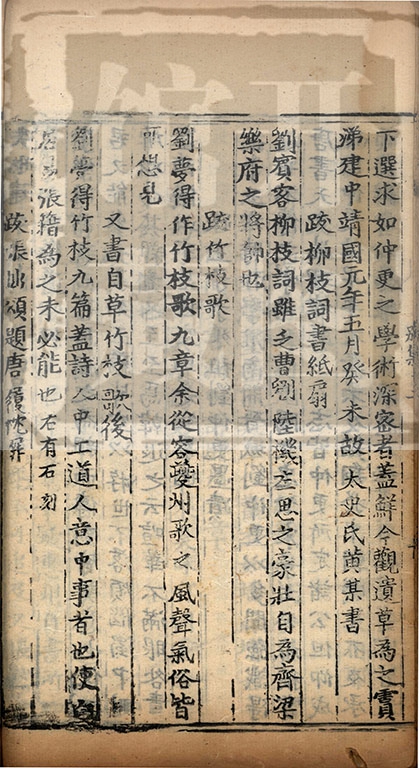 下選求如仲更之學術深密者蓋鮮今觀遺草為之實
涕建中靖國元年五月癸未故太史氏黄某書
跋柳枝詞書紙扇
劉賓客柳枝詞雖乏曹劉陸機左思之豪壯自為齊梁
樂府之將帥也
跋竹枝歌
劉夢得作竹枝歌九章余從容夔州歌之風聲氣俗皆
可想見
又書自草竹枝歌後
劉夢得竹枝九篇蓋詩人中工道人意中事者也使白
居易張籍為之未必能也右有石刻
跋張仙頌題唐履枕屏